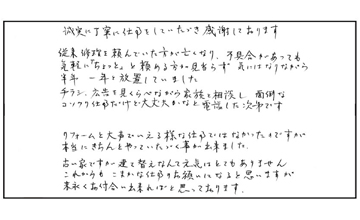 誠実に丁寧に仕事をしていただき感謝しております
従来修理を頼んでいた方が亡くなり、不具合があっても
気軽に「ちょっと」と頼める方が見当らず 気にはなりながら
半年 一年と放置していました
チラシ、広告を見くらべながら家族と相談し 面倒な
コツコツ仕事だけで大丈夫かなと電話した次第です
リフォームと大声でいえる様な仕事ではなかったのですが
本当にきちんとやっていただく事が出来ました。
古い家ですが建て替えなんて元気はとてもありません
これからも こまかな仕事のお願いになると思いますが
末永くお付合い出来ればと思っております。